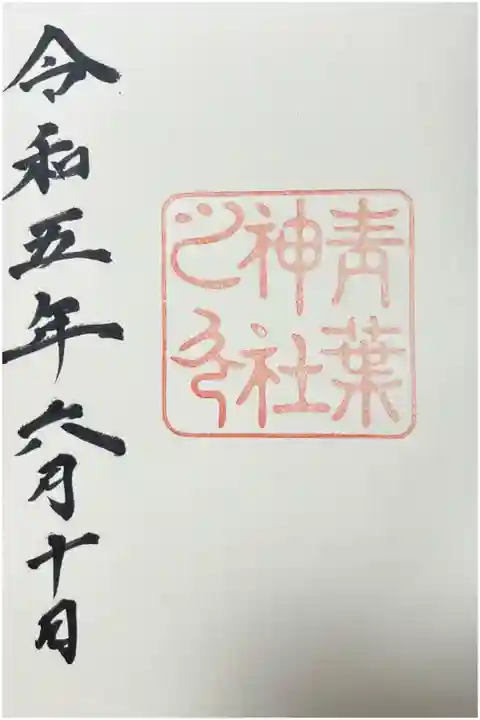 青葉
神社
之印
令和五年六月十日